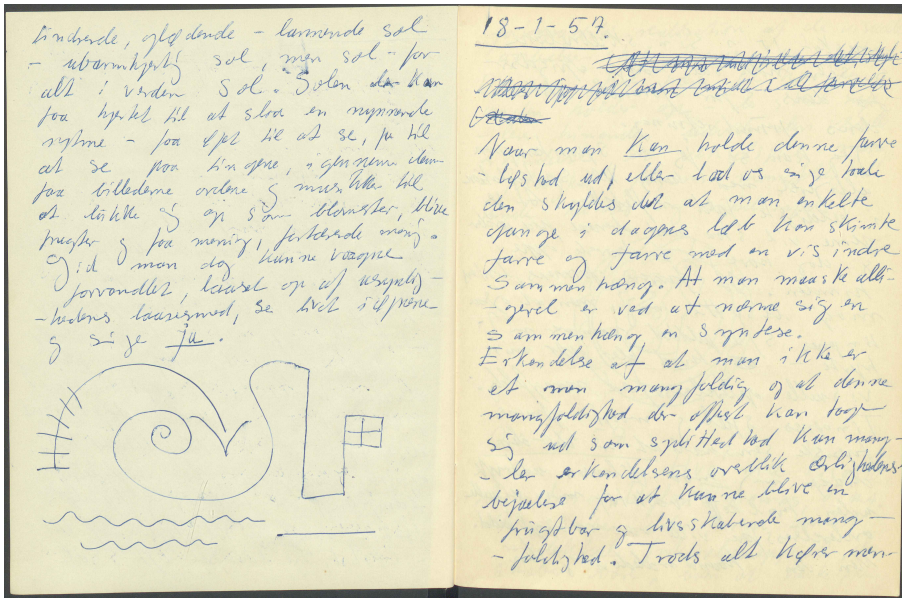 tindrende, glødende - larmende sol
- ubarmhjertig sol, men sol - for
alt i verden sol. Solen der kan
faa hjertet til at slaa en nynnende
rytme - faa øjet til at se, ja til
at se paa tingene, gennem dem
faa billederne ordene og musikken til
at lukke sig op som blomster, blive
frugter og faa mening, fortærende mening.
Gid man dog kunne vaagne
forvandlet, laaset op af
-hedens laasesmed, se livet i øjnene
og sige ja.
18-1-57.
Naar man kan holde denne farve
-løshed ud, eller lad os sige taale
den skyldes det at man enkelte
gange i dagens løb kan skimte
farve og farve med en vis indre
sammenhæng. At man maaske alli-
-gevel er ved at nærme sig en
sammenhæng en syntese.
Erkendelse af at man ikke er
et men mangfoldig og at denne
mangfoldighed der oftest kan tage
sig ud som splittethed kun mang-
-ler erkendelsens overblik ærlighedens
bejaelse for at kunne blive en
frugtbar og livsskabende mang-
-foldighed. Trods alt kører man